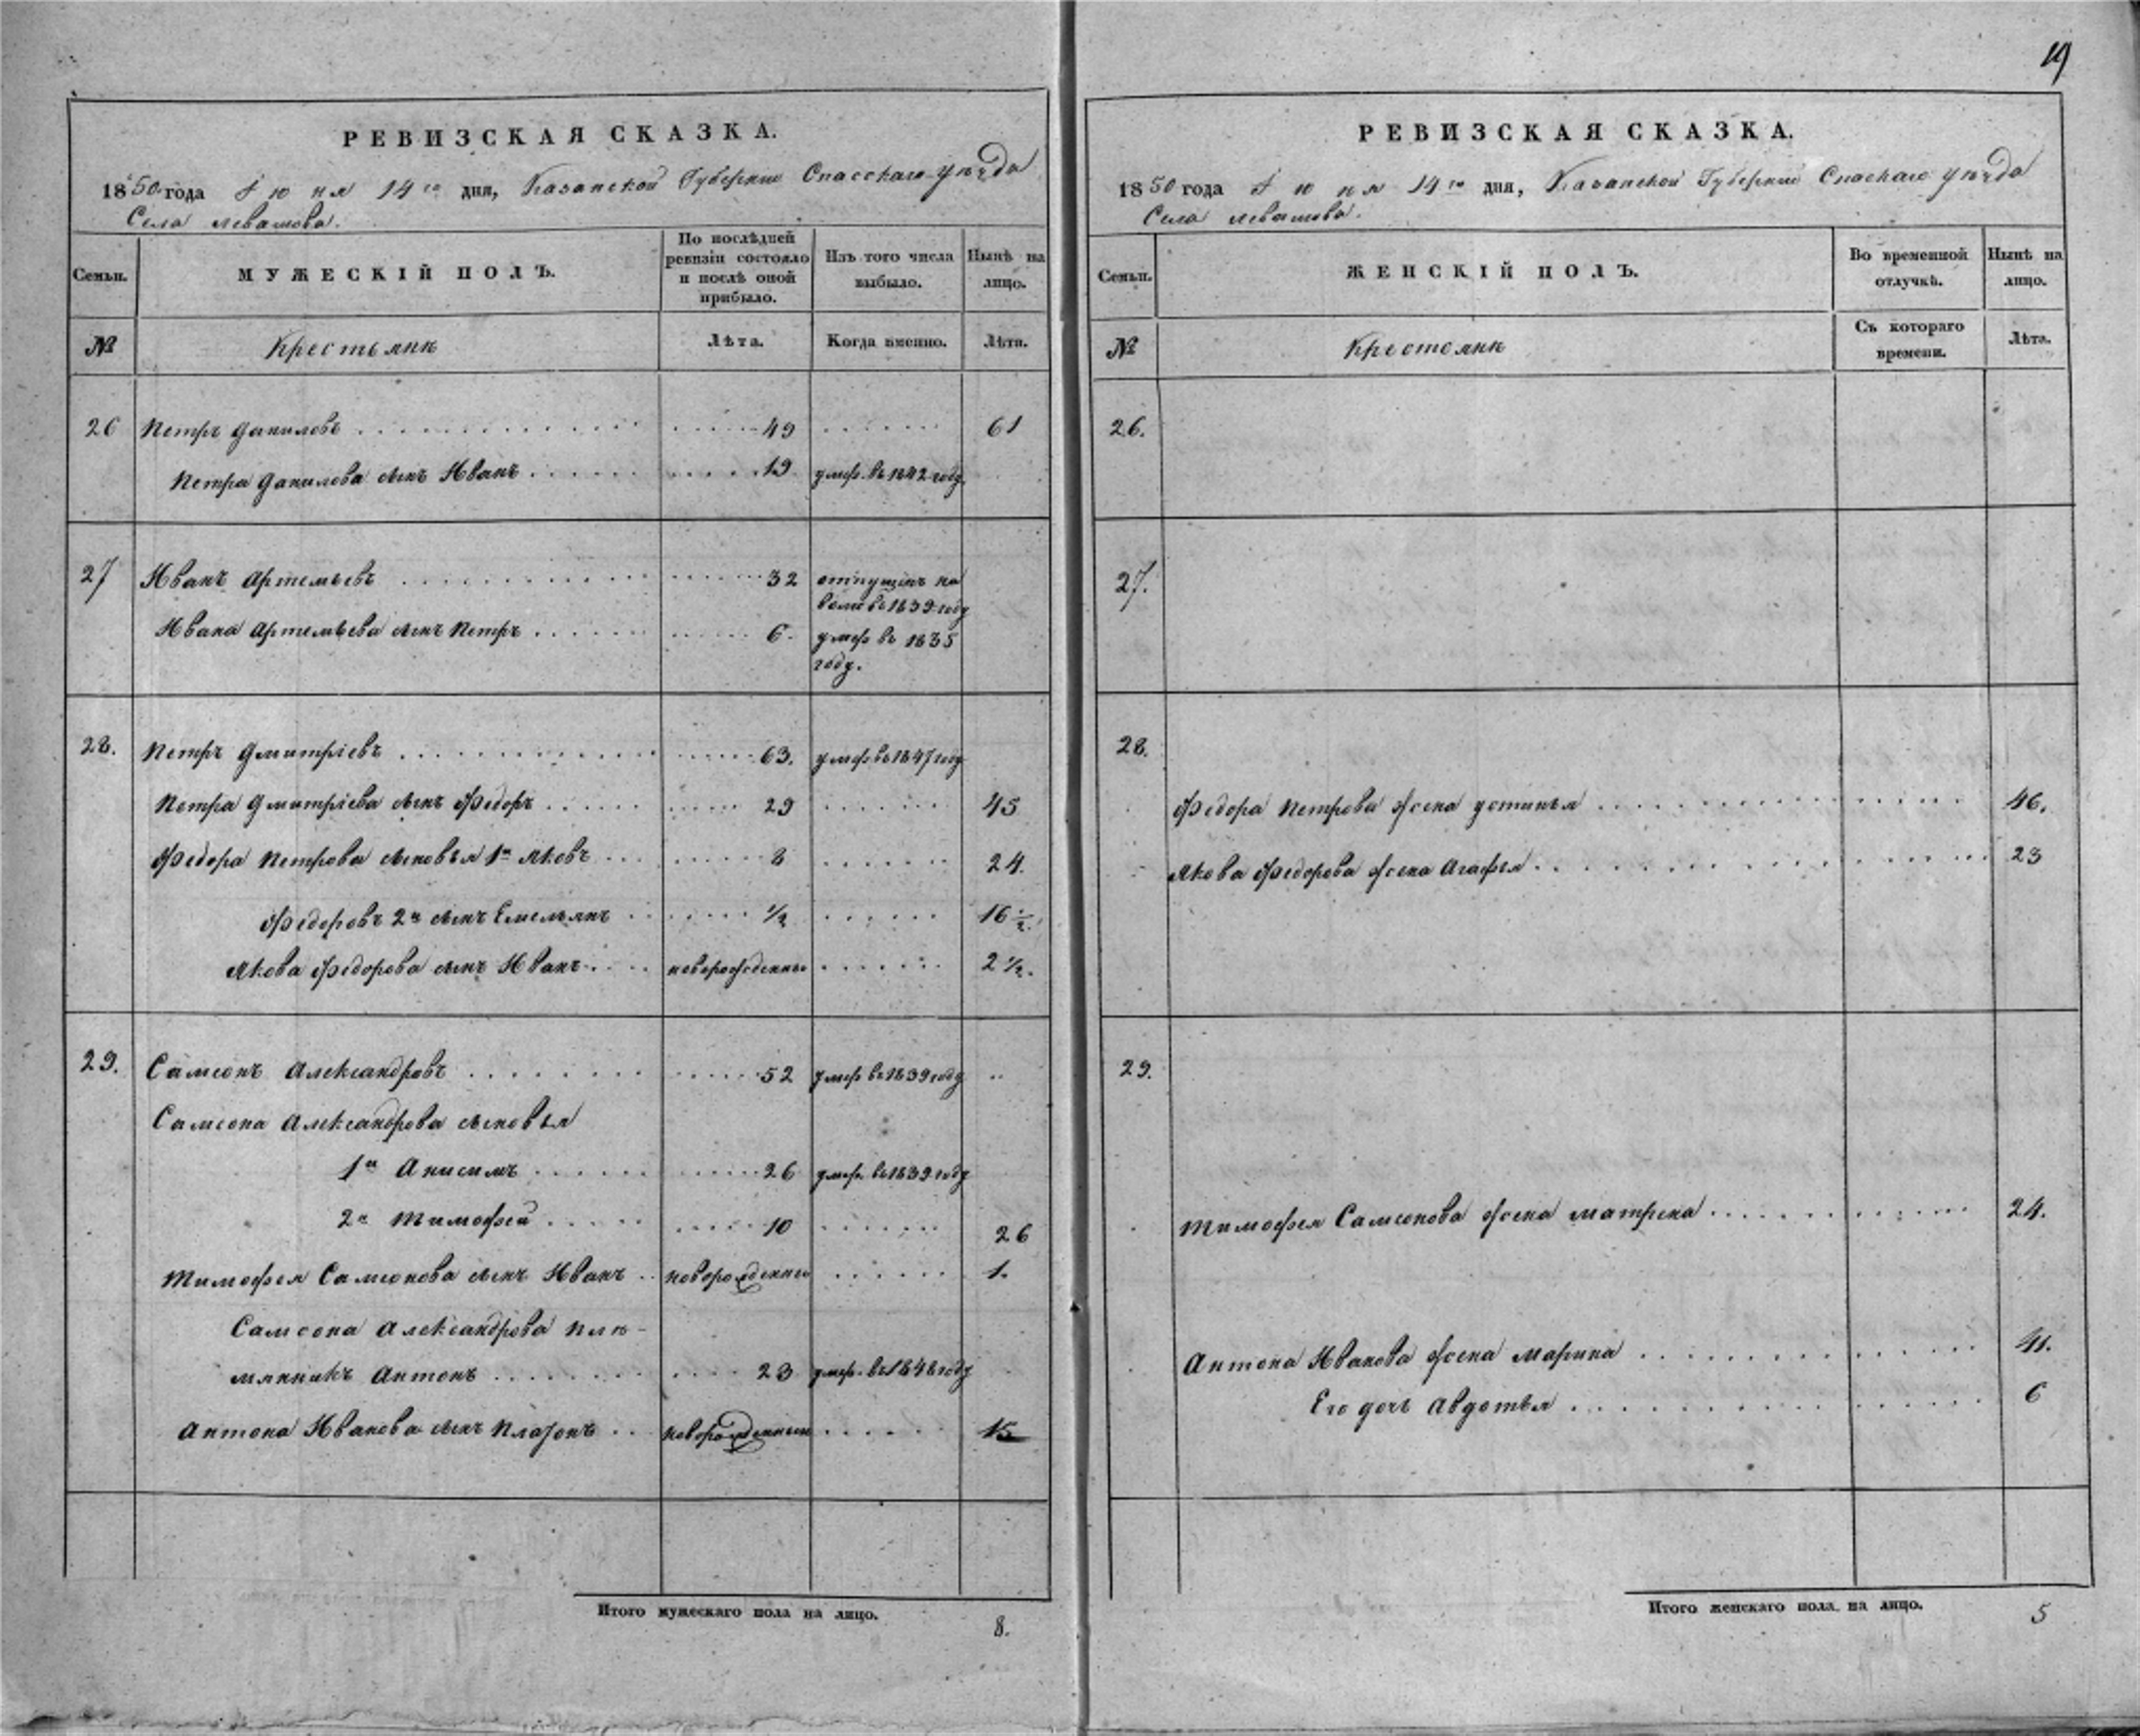 19
РЕВИЗСКАЯ СКАЗКА.
1850 года Іюня 14го дня, Казанской Губерніи Спасскаго уѣзда
Села Левашова.
Семьи.
МУЖЕСКІЙ ПОЛЪ.
По послѣдней ревизіи состояло и послѣ оной прибыло.
Изъ того числа выбыло.
Нынѣ на лицо.
№
Крестьянѣ
Лѣта.
Когда именно.
Лѣта.
26 Петръ Даниловъ 49 61
Петра Данилова сынъ Иванъ 19 умер. въ 1842 году.
27 Иванъ Артемьевъ 32 отпущенъ на
волю въ 1839 году
Ивана Артемьева сынъ Петръ 6. умер въ 1835
году.
28. Петръ Дмитріевъ 63. умер въ 1847 году
Петра Дмитріева сынъ Федоръ 29 45
Федора Петрова сыновья 1й Яковъ 8 24.
Федоровъ 2й сынъ Емельянъ 1/2 16 1/2.
Якова Федорова сынъ Иванъ новорожденны 2 1/2.
29. Самсонъ Александровъ 52 умер въ 1839 году
Самсона Александрова сыновья
1й Анисимъ 26 умер. въ 1839 году
2й Тимофей 10 26
Тимофея Самсонова сынъ Иванъ новорожденны 1.
Самсона Александрова плѣ-
мянникъ Антонъ 23 умер. въ 1848 году
Антона Иванова сынъ Платонъ новорожденный 15
Итого мужескаго пола на лицо. 8.
РЕВИЗСКАЯ СКАЗКА.
1850 года Іюня 14го дня, Казанской Губерніи Спаскаго уѣзда
Села Левашова.
Семьи.
ЖЕНСКІЙ ПОЛЪ.
Во временной отлучкѣ.
Нынѣ на лицо.
№
Крестьянѣ
Съ котораго времени.
Лѣта.
26.
27.
28.
Федора Петрова жена Устинья 46.
Якова Федорова жена Агафья 23
29.
Тимофея Самсонова жена Матрена 24.
Антона Иванова жена Марина 41.
Его дочь Авдотья 6
Итого женскаго пола на лицо. 5